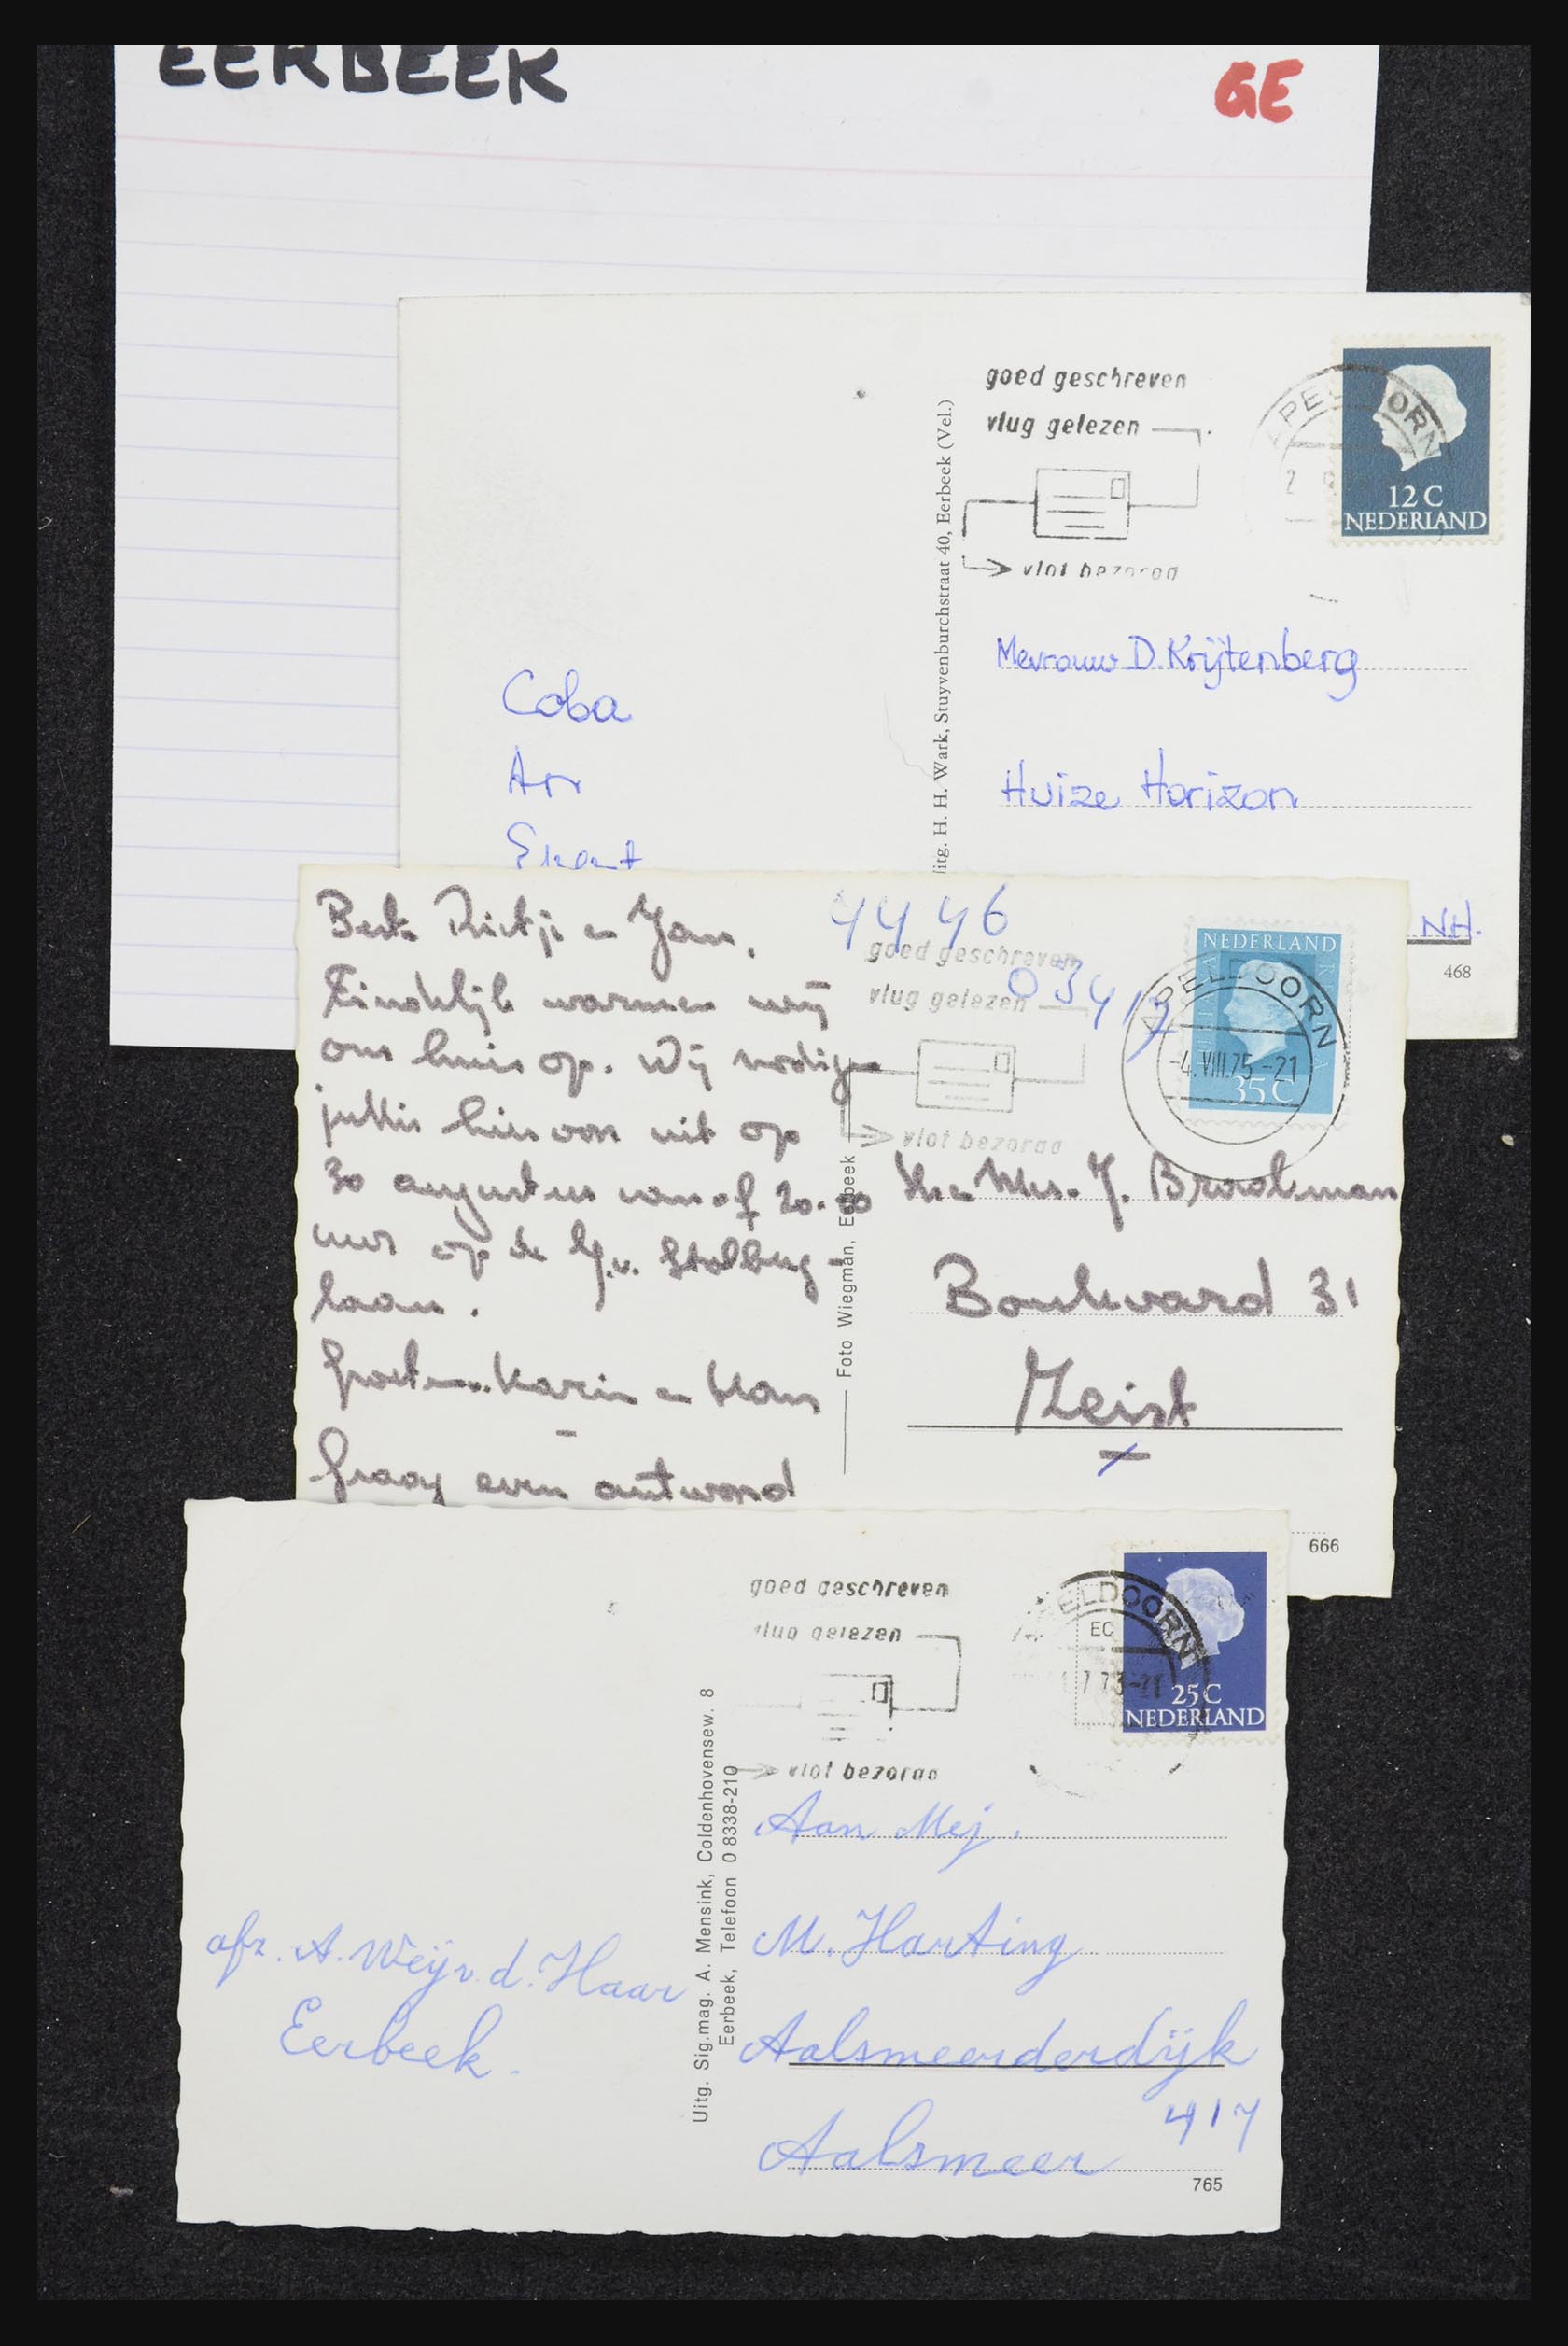 EERBEEK
GE
goed geschreven
vlug gelezen
vlot bezorgd
APELDOORN
12 C
NEDERLAND
Uitg. H. H. Wark, Stuyvenburchstraat 40, Eerbeek (Vel.)
Mevrouw D. Krijtenberg
Huize Horizon
N.H.
468
Coba
Arr
Beste Rietje en Jan,
Eindelijk warmen wij
ons huis op. Wij nodigen
jullie hiervoor uit op
30 augustus vanaf 20.00
uur op de J.v. Stolberg-
laan.
Groeten Karin en Hans
Graag even antwoord
4446
03417
goed geschreven
vlug gelezen
vlot bezorgd
NEDERLAND
APELDOORN
-4.VIII.75-21
35 C
Foto Wiegman, Eerbeek
Hr en Mevr. J.
Boulevard 31
Zeist
666
goed geschreven
vlug gelezen
vlot bezorgd
APELDOORN
EC
7 73-21
25 C
NEDERLAND
Uitg. Sig.mag. A. Mensink, Coldenhovensew. 8
Eerbeek, Telefoon 0 8338-210
afz. A. Weijv.d. Haar
Eerbeek.
Aan Mej.
M. Harting
Aalsmeerderdijk
417
Aalsmeer
765